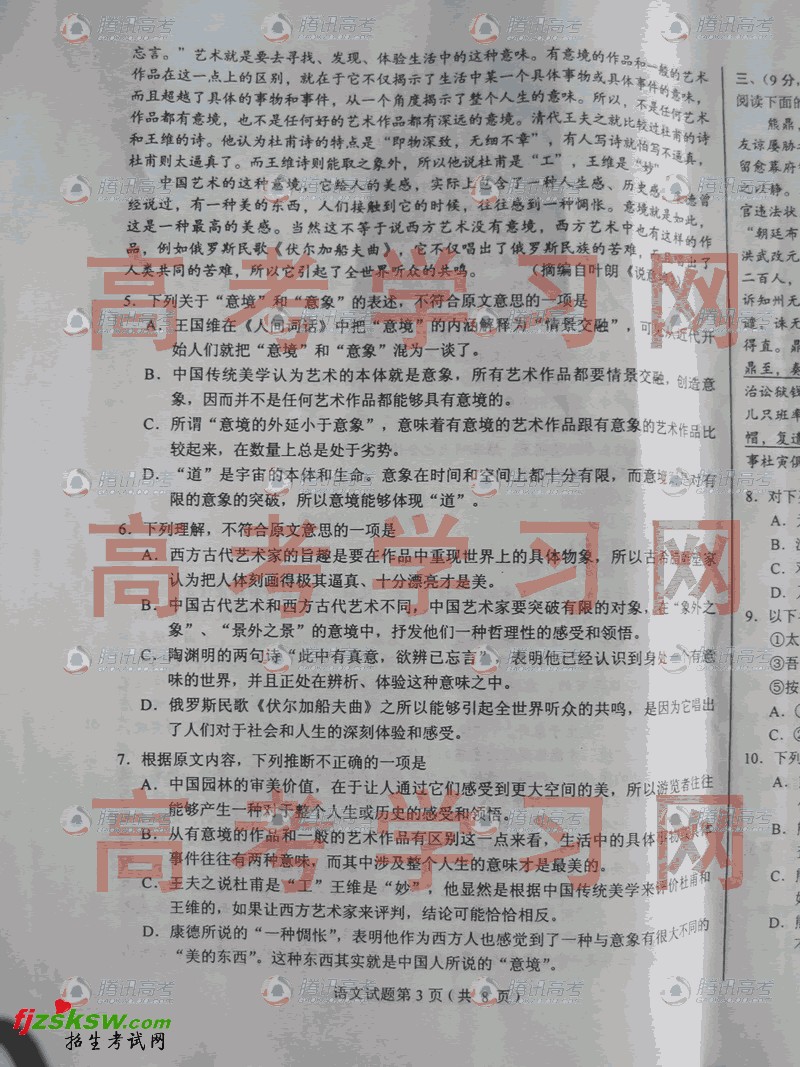 忘言。”艺术就是要去寻找、发现、体验生活中的这种意味。有意境的作品和一般的艺术
作品在这一点上的区别，就在于它不仅揭示了生活中某一个具体事物或具体事件的意味，
而且超越了具体的事物和事件，从一个角度揭示了整个人生的意味。所以，不是任何艺术
作品都有意境，也不是任何好的艺术作品都有深远的意境。清代王夫之就比较过杜甫的诗
和王维的诗。他认为杜甫诗的特点是“即物深致，无细不章”，有人写诗就怕写不逼真，
杜甫则太逼真了。而王维诗则能取之象外，所以他说杜甫是“工”，王维是“妙”
中国艺术的这种意境，它给人的美感，实际上包含了一种人生感、历史感。康德曾
经说过，有一种美的东西，人们接触到它的时候，往往感到一种惆怅。意境就是如此，
这是一种最高的美感。当然这不等于说西方艺术没有意境，西方艺术中也有这样的作
品，例如俄罗斯民歌《伏尔加船夫曲》，它不仅唱出了俄罗斯民族的苦难，且唱出了
人类共同的苦难，所以它引起了全世界听众的共鸣。（摘编自叶朗《说意境》
5．下列关于“意境”和“意象”的表述，不符合原文意思的一项是
A．王国维在《人间词话》中把“意境”的内涵解释为“情景交融”，可见从近代开
始人们就把“意境”和“意象”混为一谈了。
B．中国传统美学认为艺术的本体就是意象，所有艺术作品都要情景交融，创造意
象，因而并不是任何艺术作品都能够具有意境的。
C．所谓“意境的外延小于意象”，意味着有意境的艺术作品跟有意象的艺术作品比
较起来，在数量上总是处于劣势。
D．“道”是宇宙的本体和生命。意象在时间和空间上都十分有限，而意境是对有
限的意象的突破，所以意境能够体现“道”。
6．下列理解，不符合原文意思的一项是
A．西方古代艺术家的旨趣是要在作品中重现世界上的具体物象，所以古希腊雕塑家
认为把人体刻画得极其逼真、十分漂亮才是美。
B．中国古代艺术和西方古代艺术不同，中国艺术家要突破有限的对象，在“象外之
象”、“景外之景”的意境中，抒发他们一种哲理性的感受和领悟。
C．陶渊明的两句诗“此中有真意，欲辨已忘言”，表明他已经认识到身处有意
味的世界，并且正处在辨析、体验这种意味之中。
D．俄罗斯民歌《伏尔加船夫曲》之所以能够引起全世界听众的共鸣，是因为它唱出
了人们对于社会和人生的深刻体验和感受。
7．根据原文内容，下列推断不正确的一项是
A．中国园林的审美价值，在于让人通过它们感受到更大空间的美，所以游览者往往
能够产生一种对于整个人生或历史的感受和领悟。
B．从有意境的作品和一般的艺术作品有区别这一点来看，生活中的具体事物或具体
事件往往有两种意味，而其中涉及整个人生的意味才是最美的。
C．王夫之说杜甫是“工”王维是“妙”，他显然是根据中国传统美学来评价杜甫和
王维的，如果让西方艺术家来评判，结论可能恰恰相反。
D．康德所说的“一种惆怅”，表明他作为西方人也感觉到了一种与意象有很大不同的
“美的东西”。这种东西其实就是中国人所说的“意境”。
语文试题第 3 页（共 8 页）
三、（9分，
阅读下面的
熊鼎，
友谅屡胁
留愈幕府
之以静。
官违法状
“朝廷布
洪武改元
二百人，
诉知州无
諠，诛无
得直。
鼎至，奏
治讼狱钱
几只班率
帽，复遣
事杜寅俱
8．对下
A．
B．
C．
D．
9．以下
①太
③吾
⑤按
A．①
C．②
10．下列
A．
B．
C．
D．
高考学习网
高考学习网
高考学习网
腾讯高考
fjzsksw.com
招生考试网